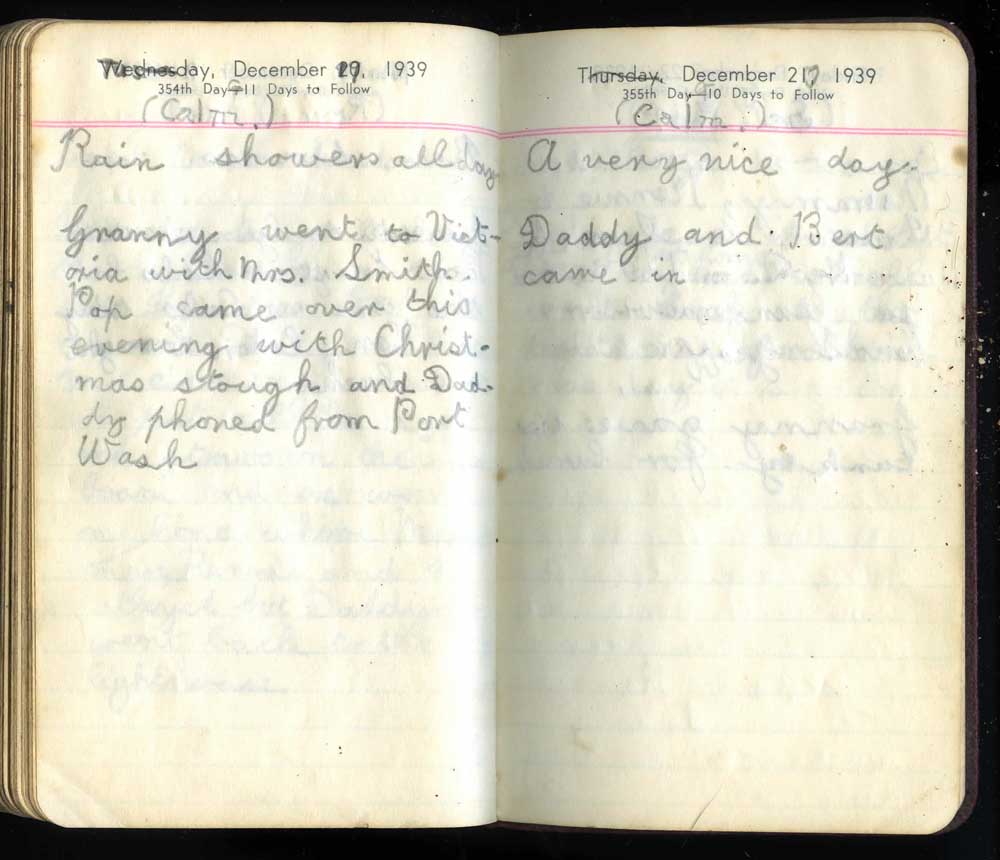 Wednesday, December 20, 1939
354th Day—11 Days to Follow
(Calm.)
Rain showers all day
Granny went to Vict-
oria with Mrs. Smith.
Pop came over this
evening with Christ-
mas stough and Dad-
dy phoned from Port
Wash
Thursday, December 21, 1939
355th Day—10 Days to Follow
(Calm.)
A very nice day.
Daddy and Bert
came in